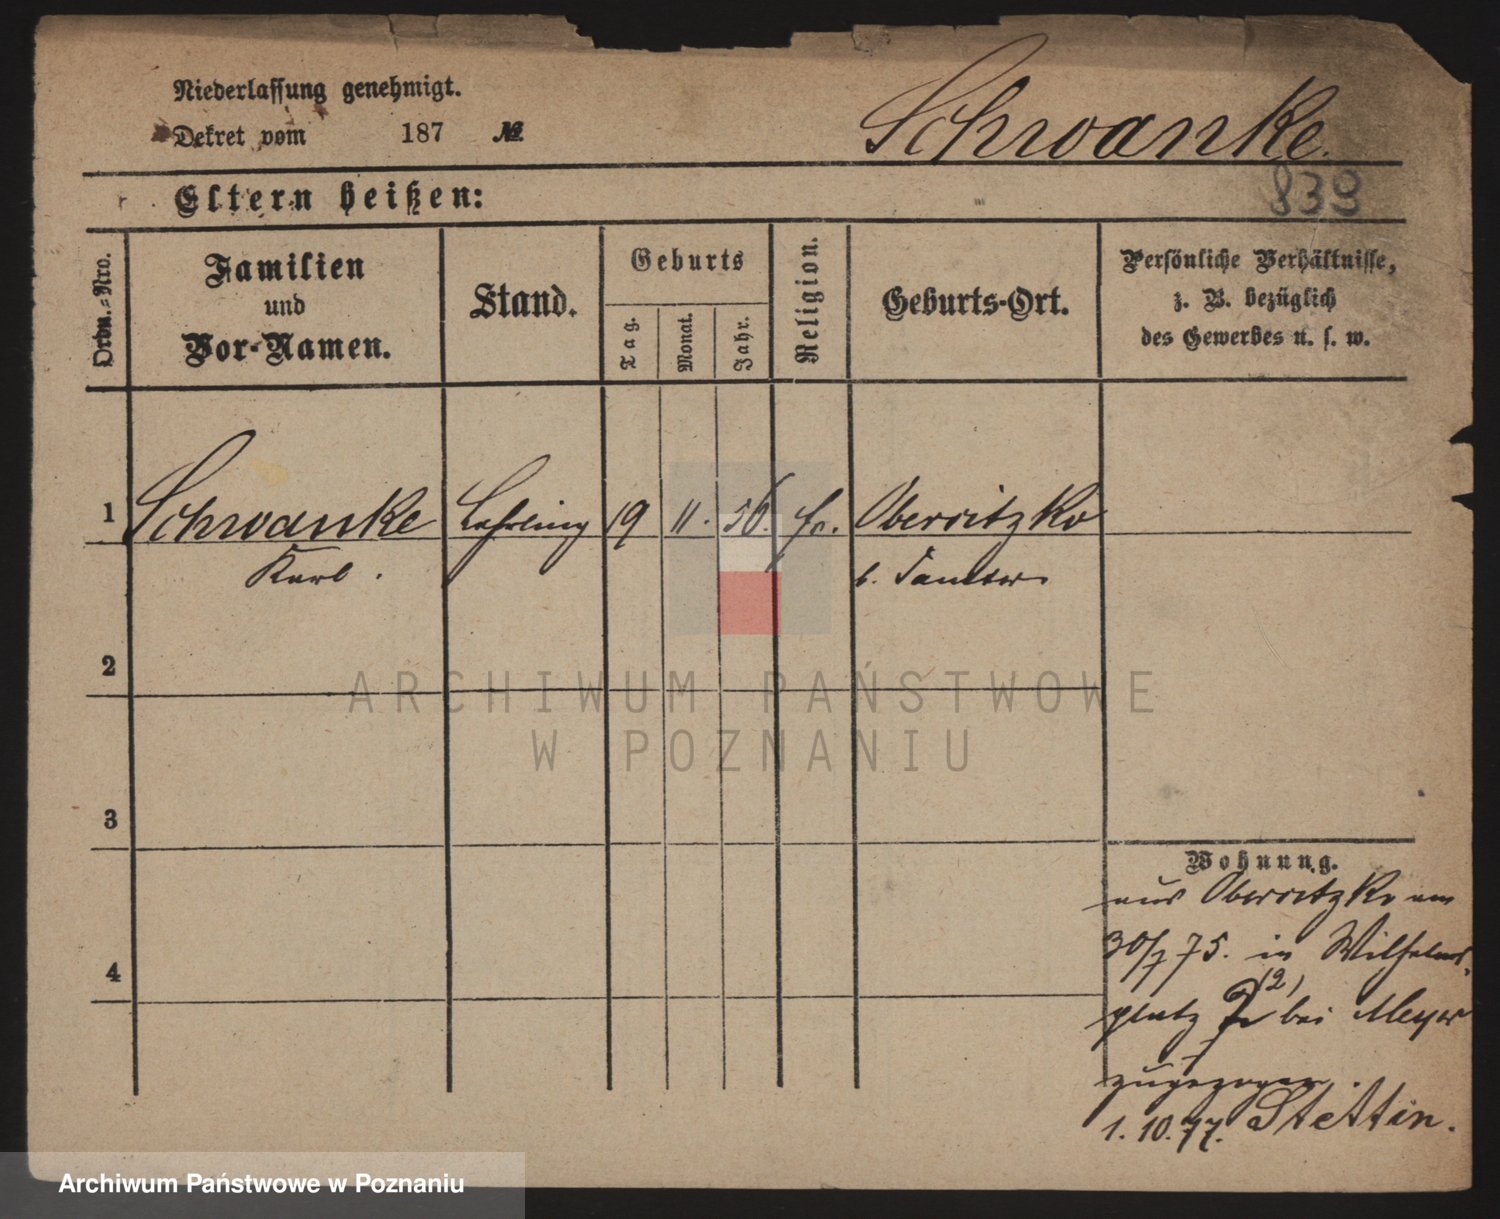 Niederlassung genehmigt.
Dekret vom 187 №
Schwanke.
839
Eltern heißen:
Ordn.-Nro.
Familien
und
Vor-Namen.
Stand.
Geburts
Tag.
Monat.
Jahr.
Religion.
Geburts-Ort.
Persönliche Verhältnisse,
z. B. bezüglich
des Gewerbes u. s. w.
1 Schwanke Lehrling 19 11. 56. Oberritzko
Karl. b. Samter
2
3
4
Wohnung.
aus Oberritzko am
30/7 75. in Wilhelms-
platz 2 bei Meyer
zugezogen.
1. 10. 77. Stettin.
ARCHIWUM PAŃSTWOWE
W POZNANIU
Archiwum Państwowe w Poznaniu